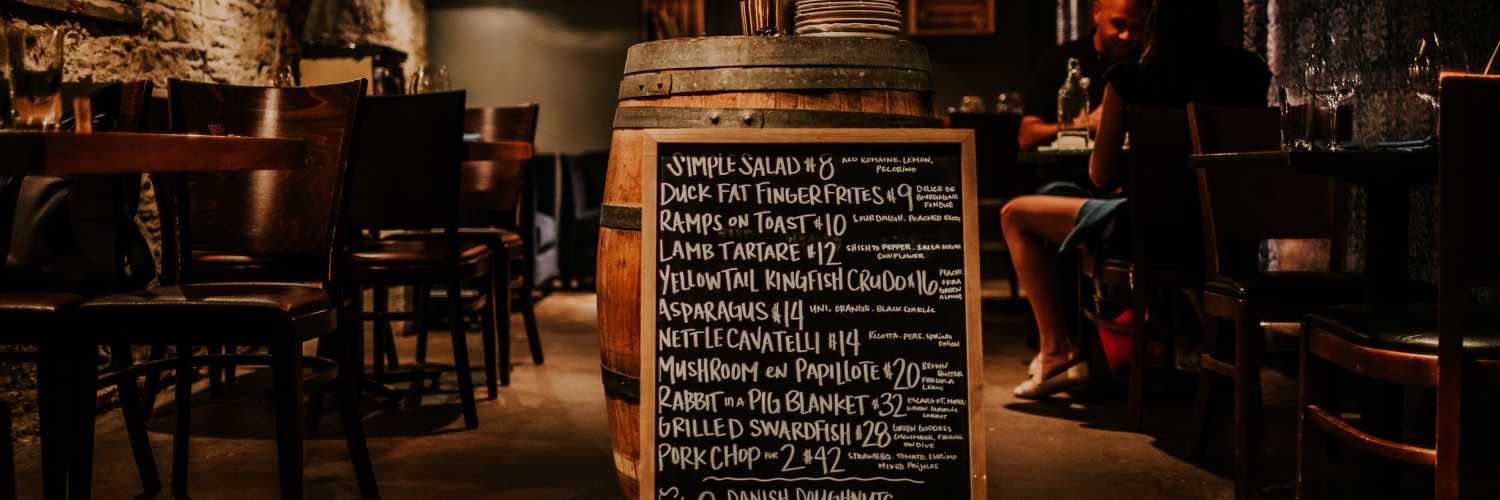 SIMPLE SALAD $8 RED ROMAINE. LEMON. PECORINO
DUCK FAT FINGER FRITES $9 DELICE DE BOURGOGNE FONDUE
RAMPS ON TOAST $10 SOURDOUGH. POACHED
LAMB TARTARE $12 SHISHITO PEPPER. SALSA SUNFLOWER
YELLOWTAIL KINGFISH CRUDO $16 PEACH OKRA GREEN ALMOND
ASPARAGUS $14 UNI, ORANGE. BLACK GARLIC
NETTLE CAVATELLI $14 RICOTTA. PEAS. SPRING ONION
MUSHROOM EN PAPILLOTE $20 BROWN BUTTER
RABBIT IN A PIG BLANKET $32 ESCARGOT. GREEN GARLIC
GRILLED SWARDFISH $28 GREEN GODDESS CUCUMBER.
PORK CHOP FOR 2 $42 TOMATO. SHRIMP MIXED FRIJOLES
DANISH DOUGHNUTS